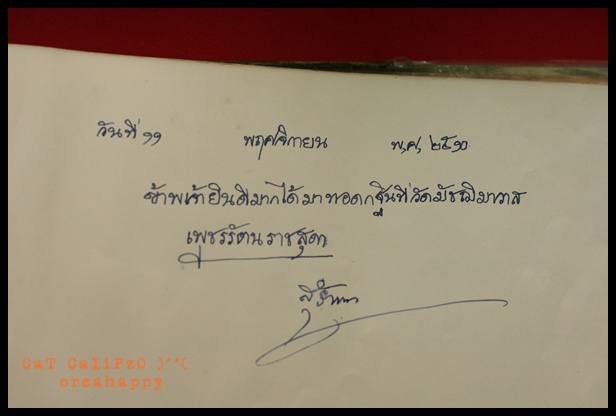 วันที่ ๑๑ พฤศจิกายน พ,ศ, ๒๕๑๐
ข้าพเจ้ายินดีมากได้มาทอดกฐินที่วัดมัชฌิมาวาส
เพชรรัตนราชสุดา
สุวัทนา
CaT CaliPsO )''(
orcahappy